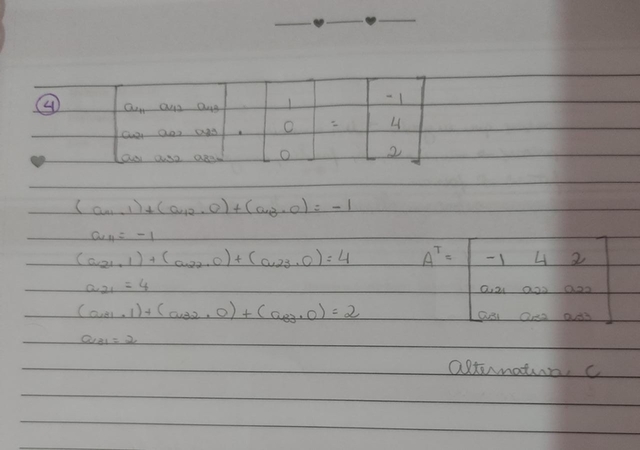 4
[a₁₁ a₁₂ a₁₃] . [1] = [-1]
[a₂₁ a₂₂ a₂₃] [0] [4]
[a₃₁ a₃₂ a₃₃] [0] [2]
(a₁₁.1)+(a₁₂.0)+(a₁₃.0)=-1
a₁₁=-1
(a₂₁.1)+(a₂₂.0)+(a₂₃.0)=4
a₂₁=4
(a₃₁.1)+(a₃₂.0)+(a₃₃.0)=2
a₃₁=2
Aᵀ= [-1 4 2]
[a₂₁ a₂₂ a₂₂]
[a₃₁ a₃₂ a₃₃]
Alternativa C